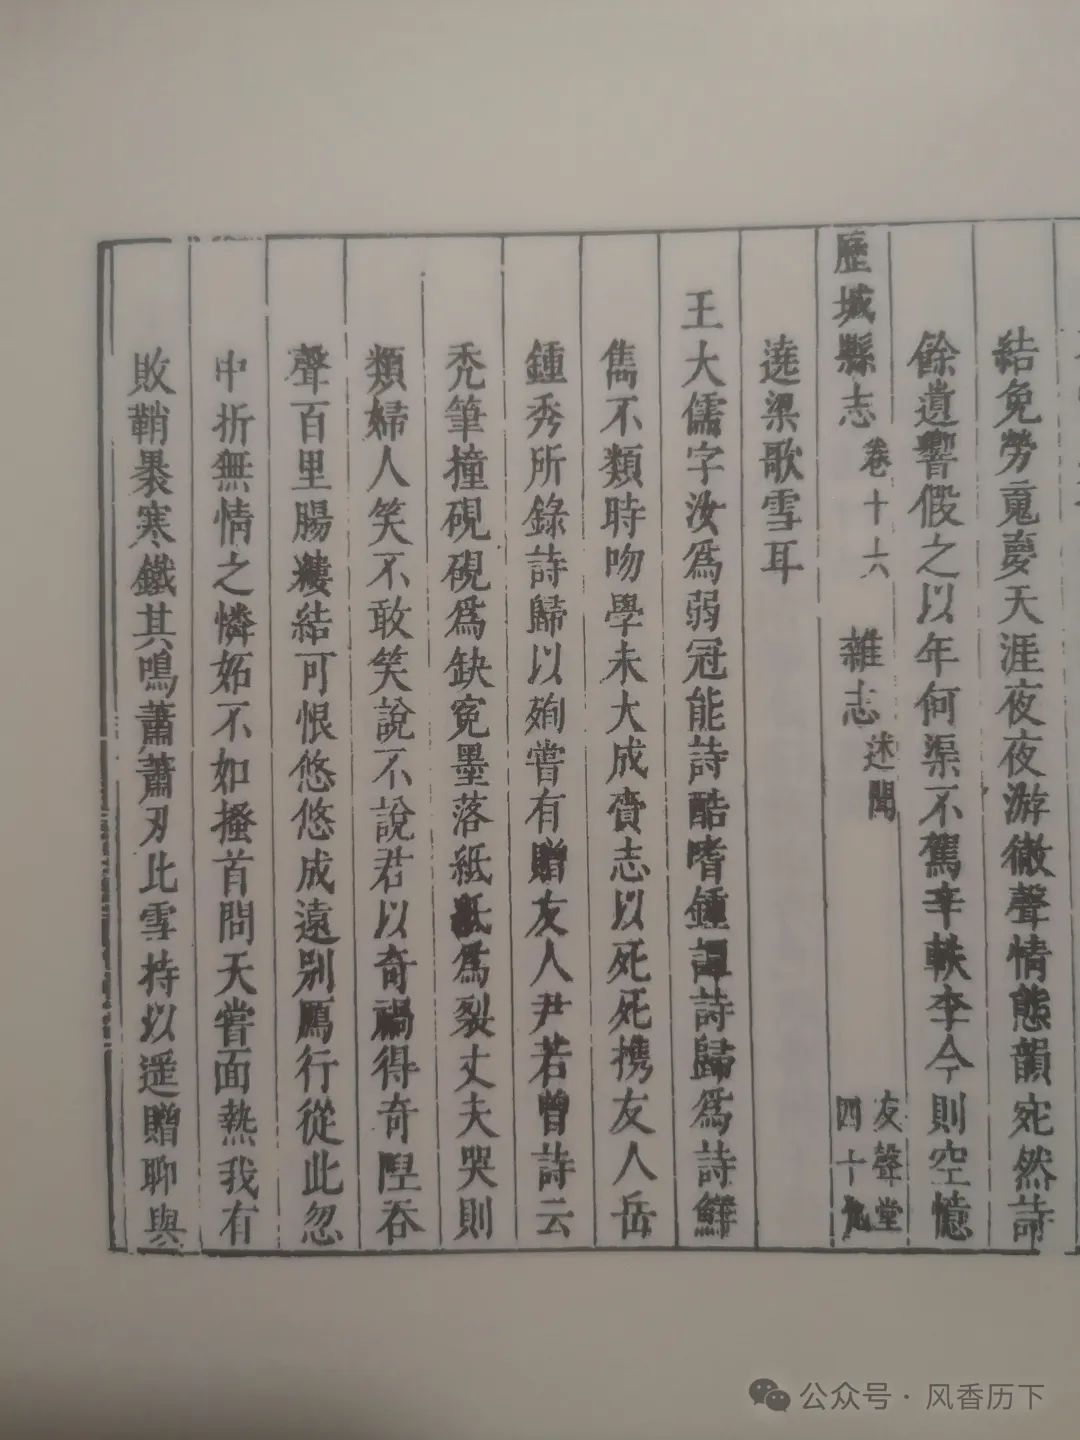 結免勞寃夢天涯夜夜游微聲情態韻宛然詩
餘遺響假之以年何渠不駕辛軼李今則空憶
歷城縣志 卷十六 雜志 述聞 友聲堂 四十九
遶梁歌雪耳
王大儒字汝為弱冠能詩酷嗜鍾譚詩歸為詩鮮
雋不類時吻學未大成賫志以死死携友人岳
鍾秀所錄詩歸以殉嘗有贈友人尹若曾詩云
禿筆撞硯硯為缺寃墨落紙紙為裂丈夫哭則
類婦人笑不敢笑說不說君以奇禍得奇陧吞
聲百里腸縷結可恨悠悠成遠别鴈行從此忽
中折無情之憐妬不如搔首問天嘗面熱我有
敗鞘裹寒鐵其鳴蕭蕭刃比雪持以遥贈聊與
公众号·风香历下